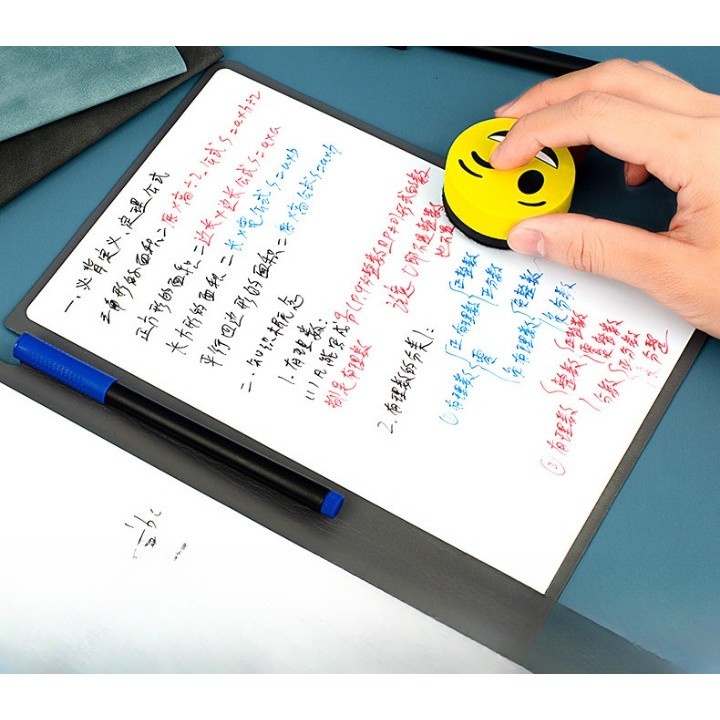 一.必背定义.定理公式
三角形的面积=底×高÷2.公式S=a×h÷2
正方形的面积=边长×边长公式S=a×a
长方形的面积=长×宽公式S=a×b
平行四边形的面积=底×高公式S=a×h
二.知识概念
1.有理数:
(1)凡能写成 形式的数
都是有理数 注意 0即不是整数
也不是
2.有理数的分类:
①有理数 正有理数 正整数
正分数
零
负有理数 负整数
负分数
②有理数 整数 正整数
零
负整数
分数 正分数